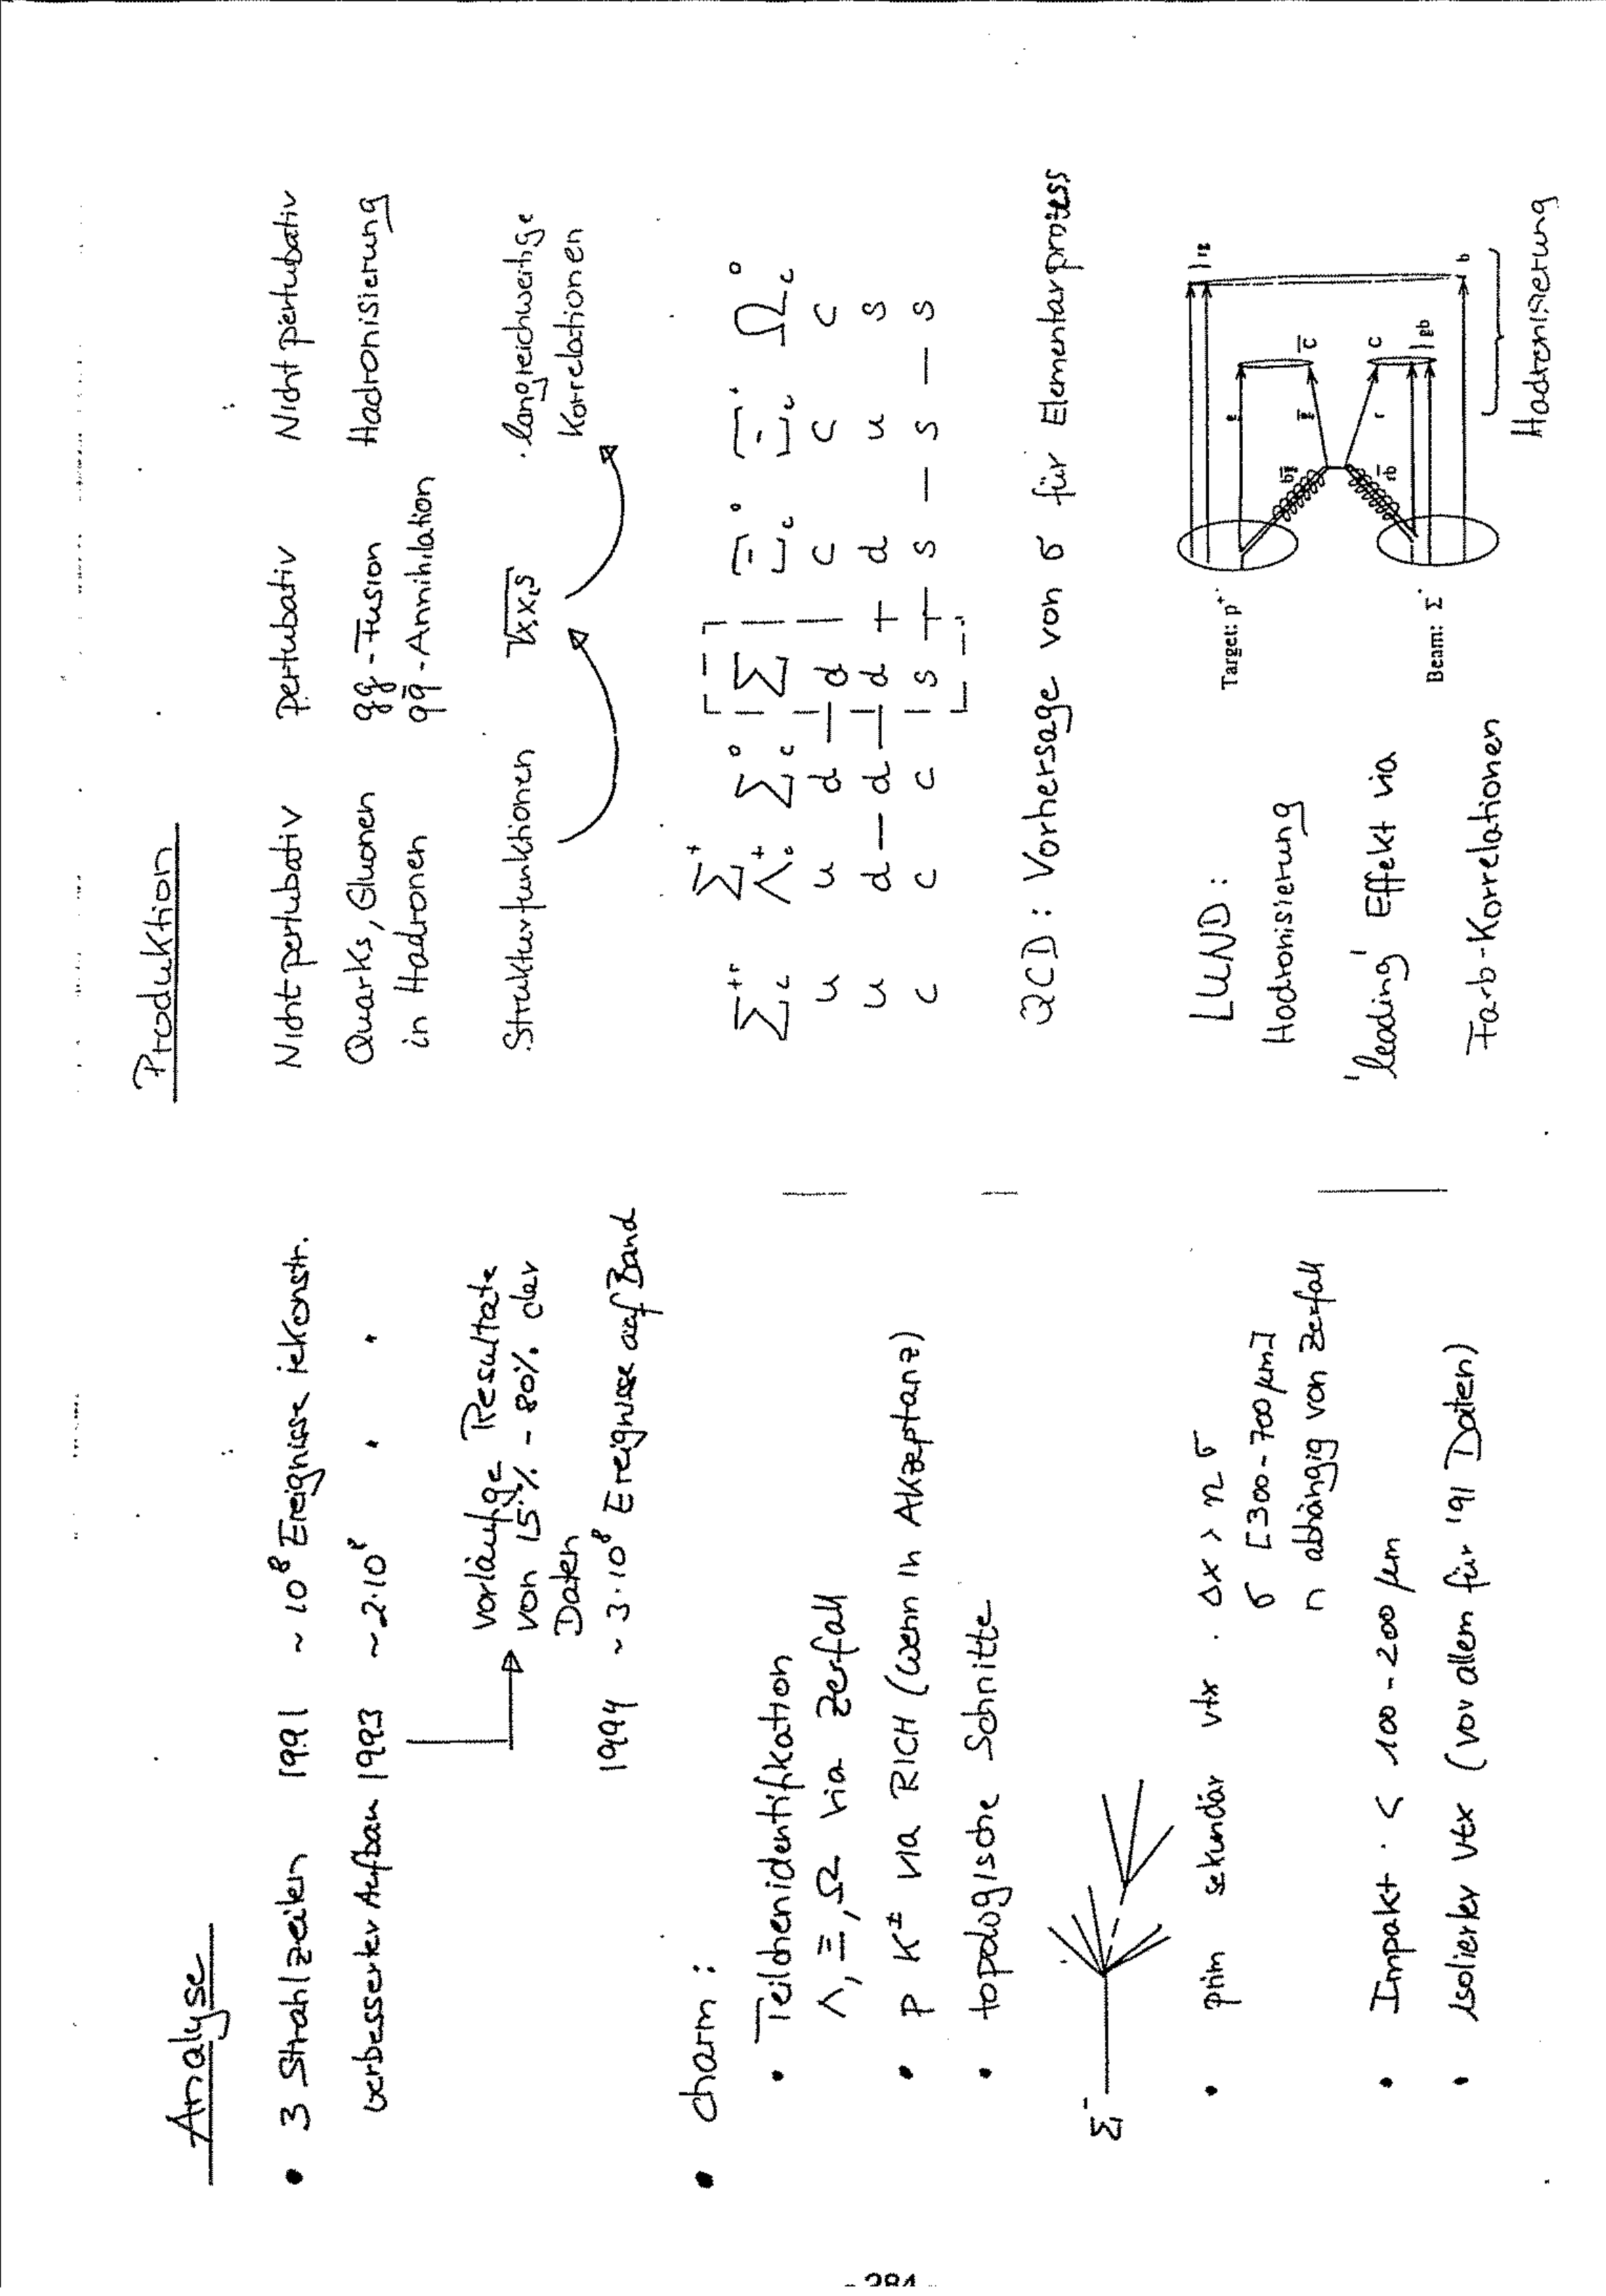 Analyse
• 3 Strahlzeiten 1991 ~ 10⁸ Ereignisse rekonstr.
verbesserter Aufbau 1993 ~ 2·10⁸ " "
vorläufige Resultate
von 15% - 80% der
Daten
1994 ~ 3·10⁸ Ereignisse auf Band
• charm :
• Teilchenidentifikation
Λ, Ξ, Ω via Zerfall
• p K± via RICH (wenn in Akzeptanz)
• topologische Schnitte
Σ⁻
• prim sekundär vtx · Δx > n σ
σ [300-700 µm]
n abhängig von Zerfall
• Impakt · < 100-200 µm
• isolierter vtx (vor allem für '91 Daten)
- 284 -
Produktion
Nicht pertubativ pertubativ Nicht pertubativ
Quarks, Gluonen gg-Fusion Hadronisierung
in Hadronen qq̄-Annihilation
Strukturfunktionen langreichweitige
Korrelationen
Σ⁺
Σc⁺⁺ Λc⁺ Σc⁰ Σ⁻ Ξc⁰ Ξc⁺ Ωc⁰
u u d — d c c c
u d — d — d — d u s
c c c s — s — s — s
QCD : Vorhersage von σ für Elementarprozess
LUND :
Hadronisierung
'leading' Effekt via
Farb-Korrelationen
Target: p⁺
Beam: Σ⁻
c̄
c
gb
b
Hadronisierung